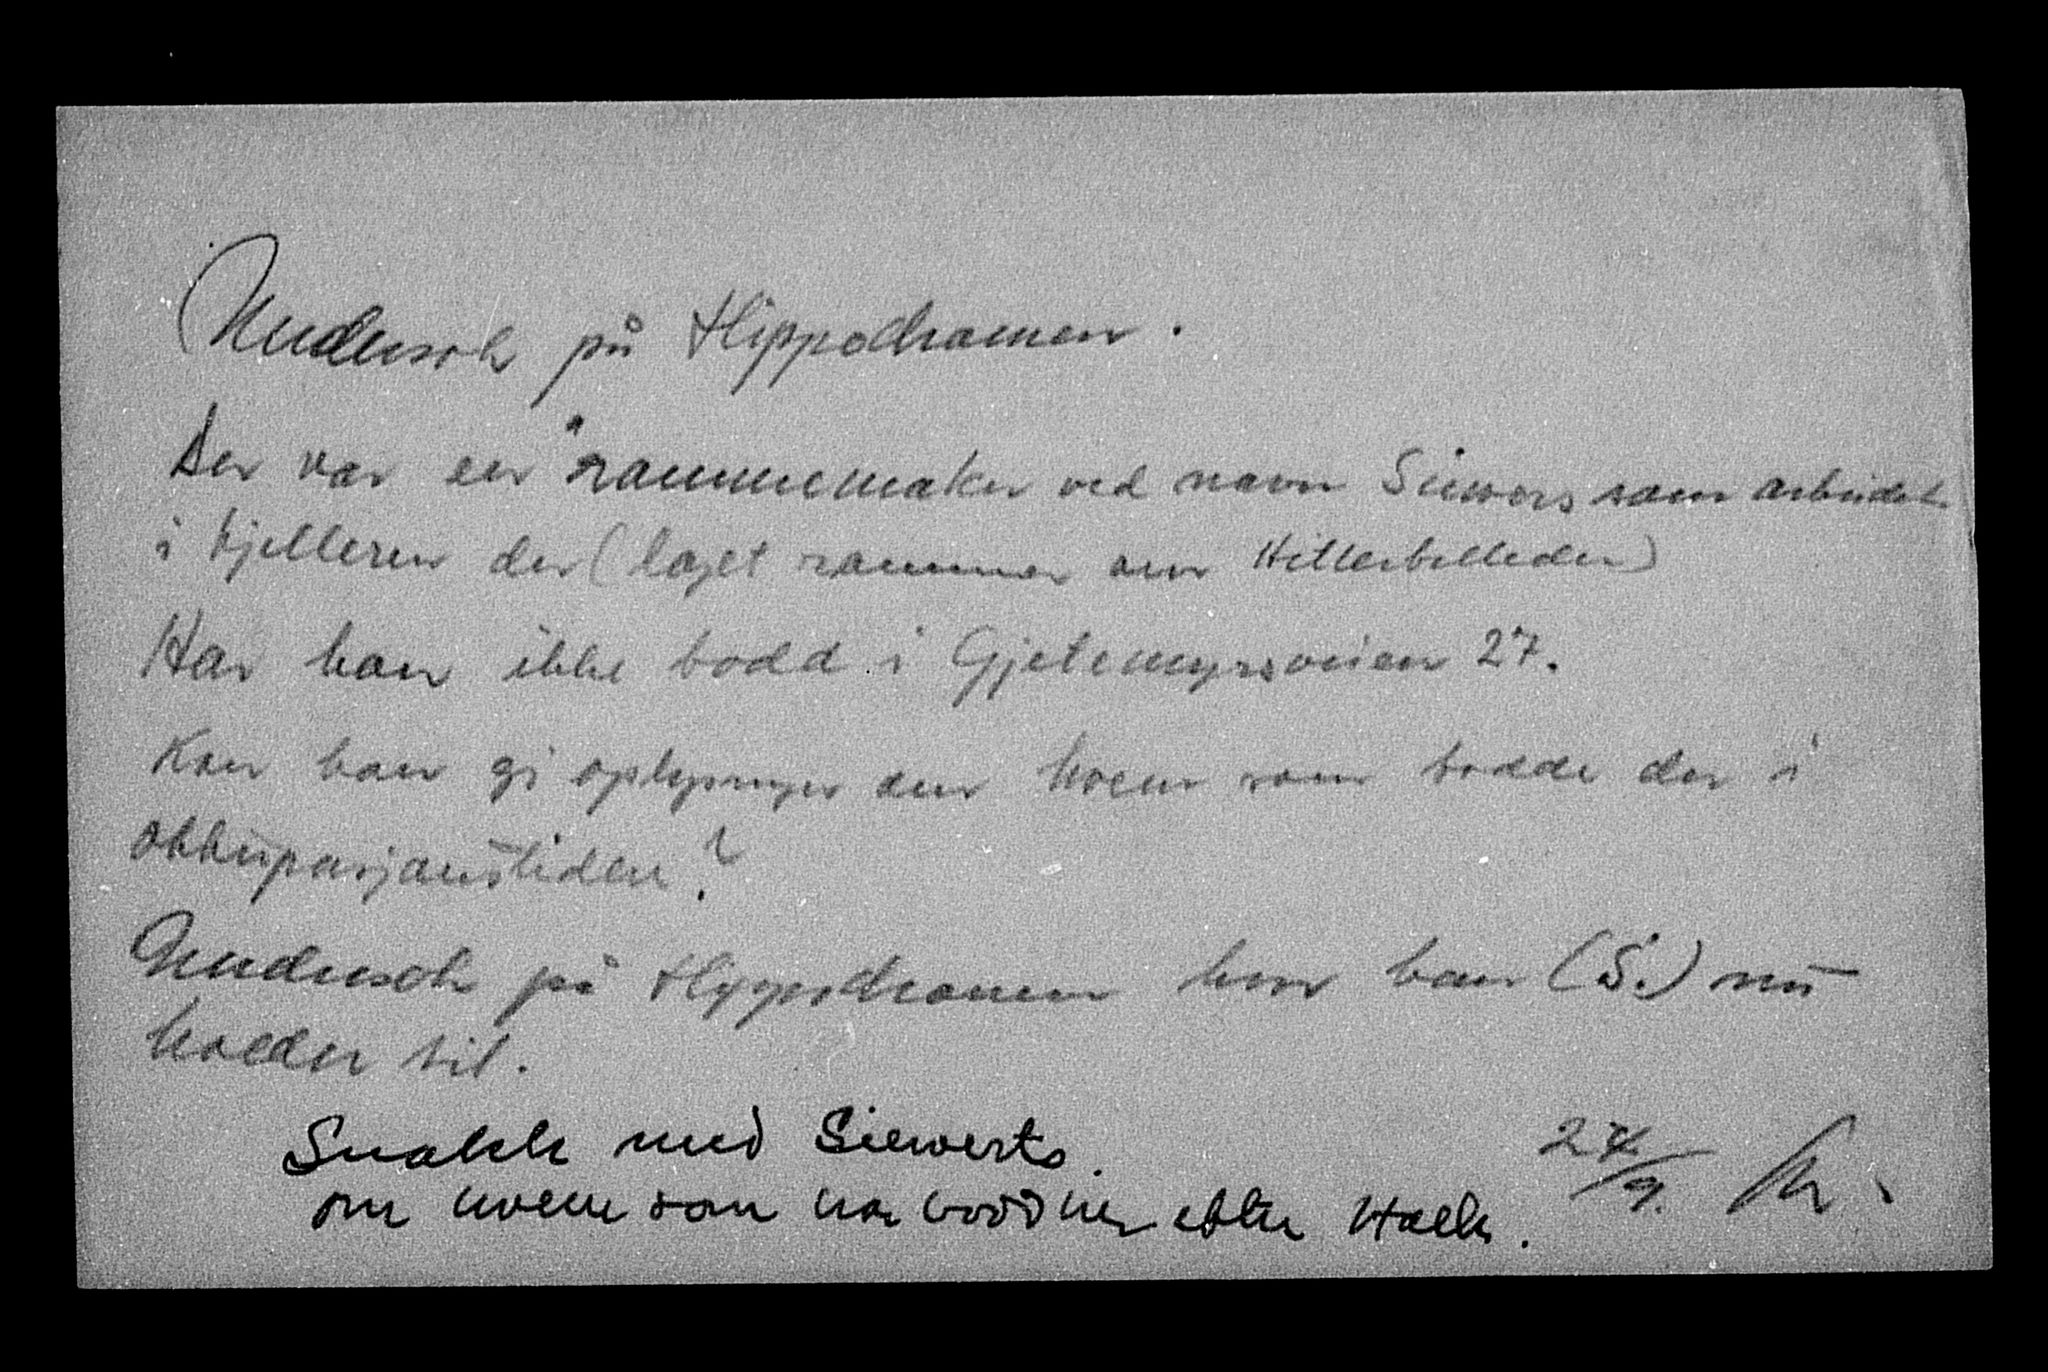 Undersøk på Hippodromen.
Der var en rammemaker ved navn Siewers som arbeidet
i kjelleren der (laget rammer om Hitlerbilleder)
Har han ikke bodd i Gjetemyrsveien 27.
Kan han gi oplysninger om hvem som bodde der i
okkupasjonstiden?
Undersøk på Hippodromen hvor han (S.) nu
holder til.
Snakk med Siewerts.
om hvem som har bodd her etter Holk.
27/9.